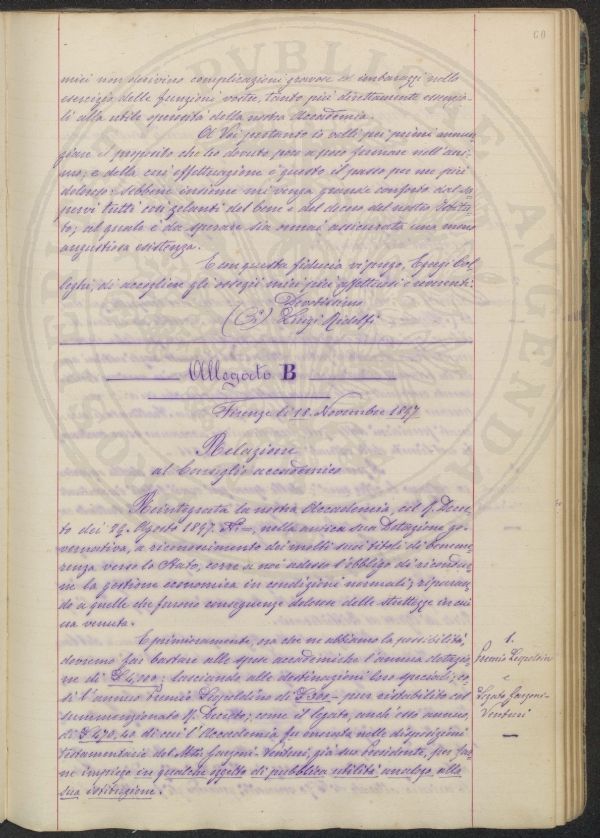 60
miei non derivino complicazioni gravose od imbarazzi nello
esercizio delle funzioni vostre, tanto più direttamente essenzia-
li alla utile operosità della nostra Accademia.
A Voi pertanto io volli pei primi annun-
ziare il proposito che ho dovuto poco a poco formare nell'ani-
mo; e della cui effettuazione è questo il passo per me più
doloroso: sebbene insieme mi venga grande conforto dal sa-
pervi tutti così zelanti del bene e del decoro del nostro Istitu-
to; al quale è da sperare sia ormai assicurata una meno
angustiosa esistenza.
E con questa fiducia vi prego, Egregi Col-
leghi, di accogliere gli ossequi miei più affettuosi e reverenti.
Devotissimo
Luigi Ridolfi
Allegato B
Firenze li 18. Novembre 1897
Relazione
al Consiglio accademico
Reintegrata la nostra Accademia, col R. Decre-
to dei 29. Agosto 1897. N.=, nella antica sua Dotazione go-
vernativa, a riconoscimento dei molti suoi titoli di beneme-
renza verso lo Stato, corre a noi adesso l'obbligo di ricondur-
ne la gestione economica in condizioni normali; riparan-
do a quelle che furono conseguenze dolorose delle strettezze in cui
era venuta.
E primieramente, ora che ne abbiamo la possibilità,
dovremo far bastare alle spese accademiche l'annua dotazio-
ne di £ 4,000: lasciando alle destinazioni loro speciali, co-
sì l'annuo Premio Leopoldino di £ 300 - pur ristabilito col
summenzionato R. Decreto; come il legato, anch'esso annuo,
di £ 470,40 di cui l'Accademia fu onorata nelle disposizioni
testamentarie del March. Garzoni-Venturi, già suo Presidente, per far-
ne impiego in qualche oggetto di pubblica utilità analogo alla
sua istituzione.
1.
Premio Leopoldino
e
Legato Garzoni-
Venturi